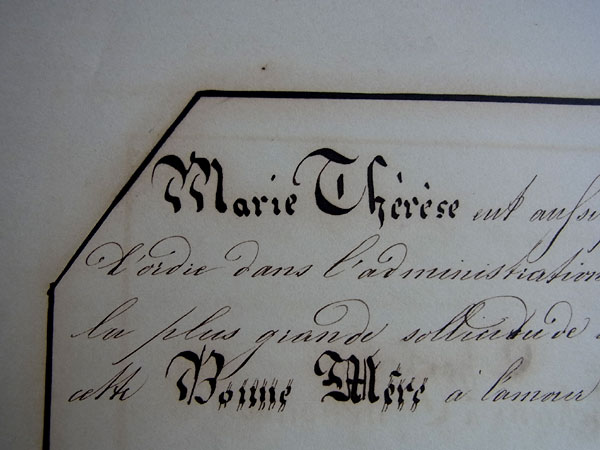 Marie Thérèse eut aussi
l'ordre dans l'administration
la plus grande sollicitude
cette Bonne Mère à l'amour